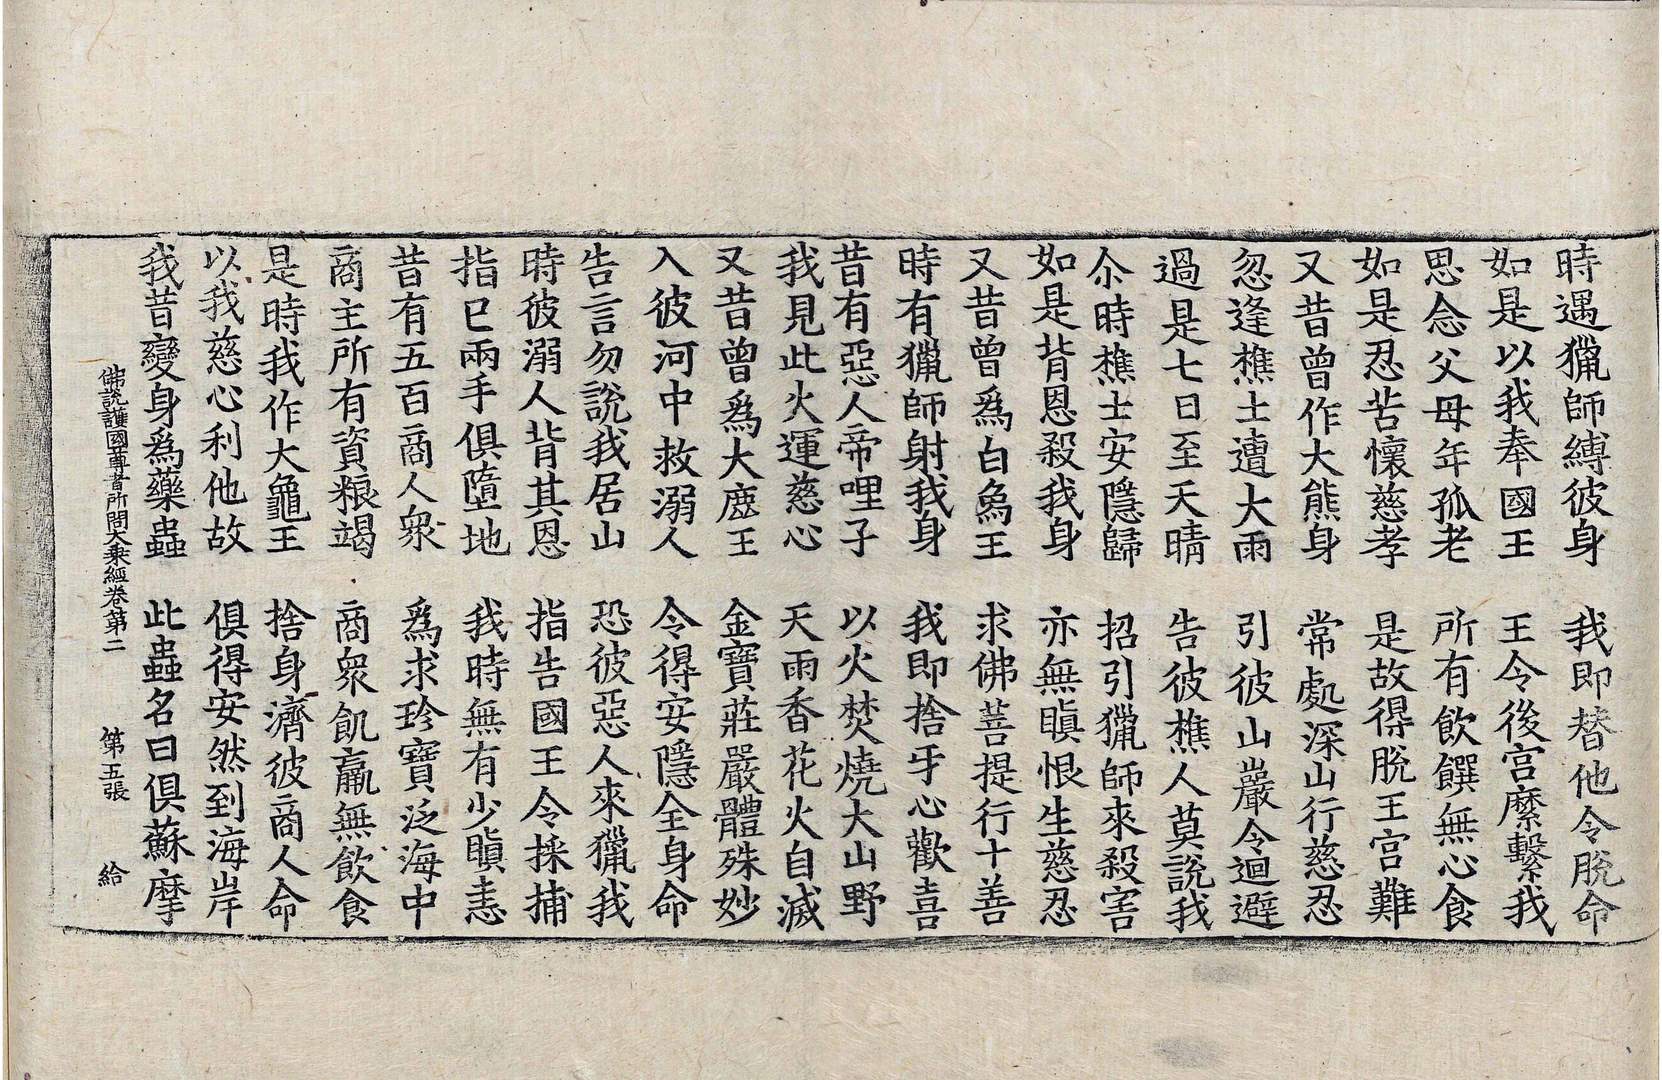 時遇獵師縛彼身　我即替他令脫命
如是以我奉國王　王令後宮縻繫我
思念父母年孤老　所有飮饌無心食
如是忍苦懷慈孝　是故得脫王宮難
又昔曾作大熊身　常處深山行慈忍
忽逢樵士遭大雨　引彼山巖令迴避
過是七日至天晴　告彼樵人莫說我
尒時樵士安隱歸　招引獵師來殺害
如是背恩殺我身　亦無瞋恨生慈忍
又昔曾爲白象王　求佛菩提行十善
時有獵師射我身　我即捨牙心歡喜
昔有惡人帝哩子　以火焚燒大山野
我見此火運慈心　天雨香花火自滅
又昔曾爲大鹿王　金寶莊嚴體殊妙
入彼河中救溺人　令得安隱全身命
告言勿說我居山　恐彼惡人來獵我
時彼溺人背其恩　指告國王令採捕
指已兩手俱墮地　我時無有少瞋恚
昔有五百商人衆　爲求珍寶泛海中
商主所有資粮竭　商衆飢羸無飮食
是時我作大龜王　捨身濟彼商人命
以我慈心利他故　俱得安然到海岸
我昔變身爲藥蟲　此蟲名曰俱蘇摩
佛說護國尊者所問大乘經卷第二　第五張　給